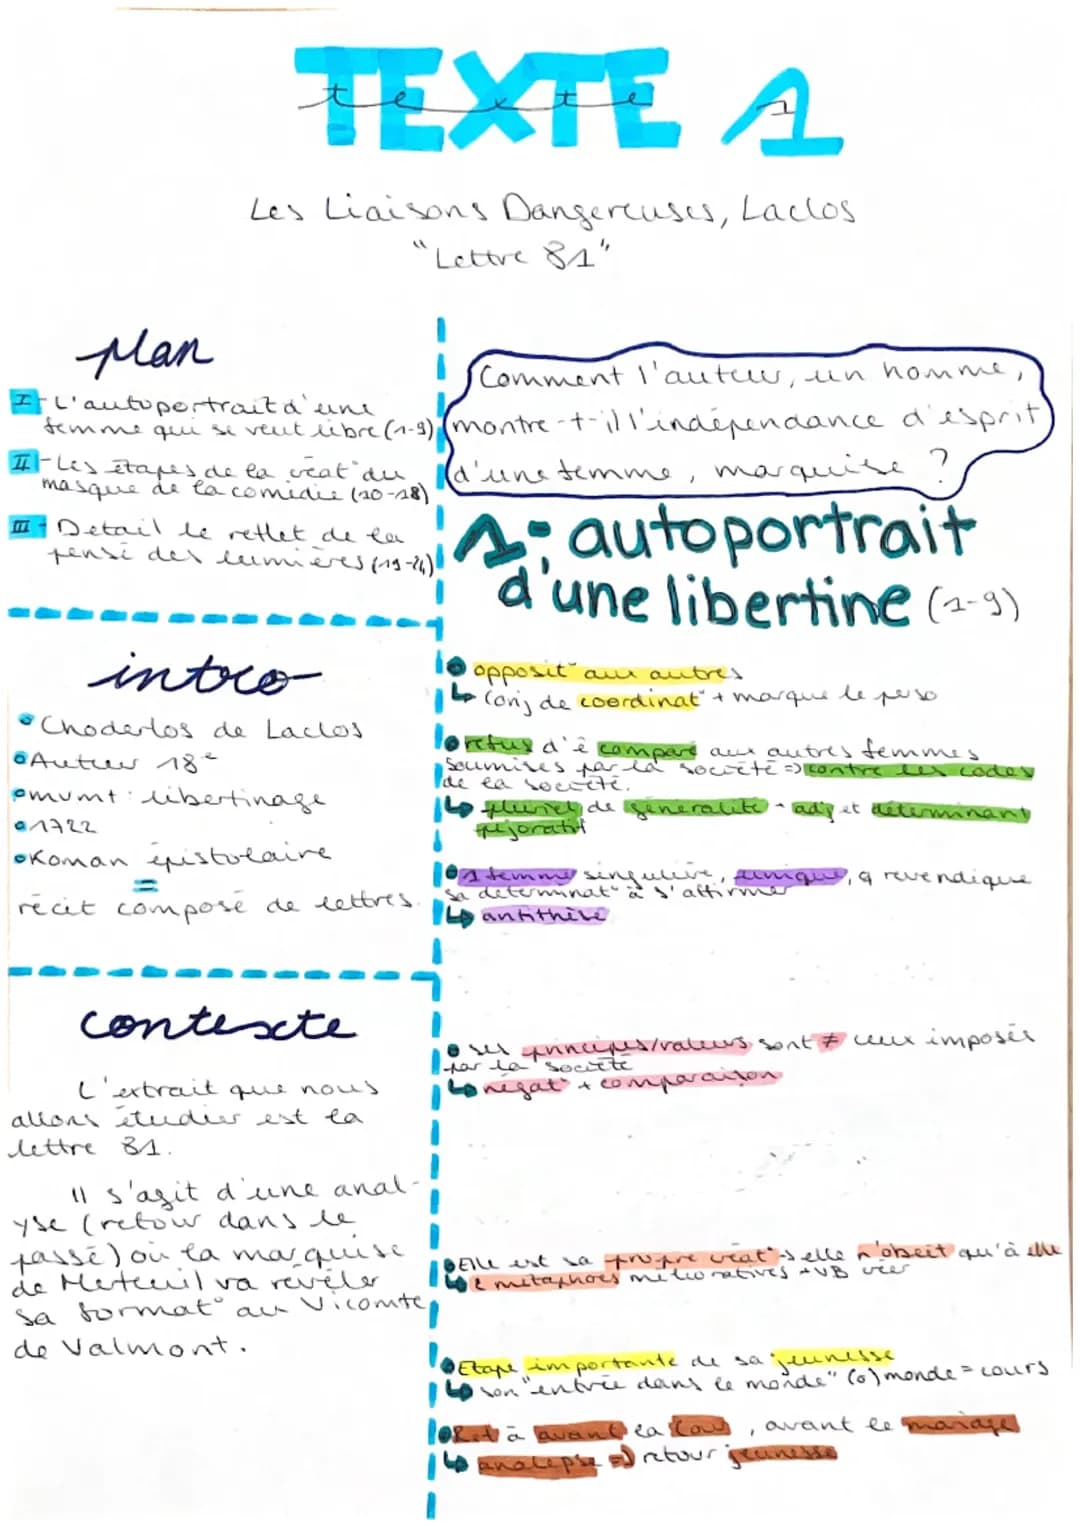 TEXTE 1
texte 1
Les Liaisons Dangereuses, Laclos
"Lettre 81"
plan
I - L'autoportrait d'une
femme qui se veut libre (1-9)
II - Les étapes de la créat° du
masque de la comédie (10-18)
III - Detail le reflet de la
pensé des lumières (19-24)
intro
Choderlos de Laclos
Auteur 18e
mvmt : libertinage
1722
Roman épistolaire
=
récit composé de lettres.
contexte
L'extrait que nous
allons étudier est la
lettre 81.
Il s'agit d'une anal-
yse (retour dans le
passé) où la marquise
de Merteuil va révéler
sa format° au Vicomte
de Valmont.
Comment l'auteur, un homme,
montre-t-il l'indépendance d'esprit
d'une femme, marquise ?
1- autoportrait
d'une libertine (1-9)
opposit° aux autres
↳ Conj de coordinat° + marque le perso
refus d'ê comparé aux autres femmes
soumises par la société => contre les codes
de la société.
↳ pluriel de généralité + adj et déterminant
péjoratif
1 femme singulière, unique, q revendique
sa déterminat° à s'affirmer
↳ antithèse
ses principes/valeurs sont ≠ ceux imposés
par la société
↳ négat° + comparaison
Elle est sa propre créat° → elle n'obéit qu'à elle
↳ 2 métaphores mélioratives + VB créer
Etape importante de sa jeunesse
↳ son "entrée dans le monde" (6) monde = cours
Ret à avant la Cour, avant le mariage
↳ analepse => retour jeunesse